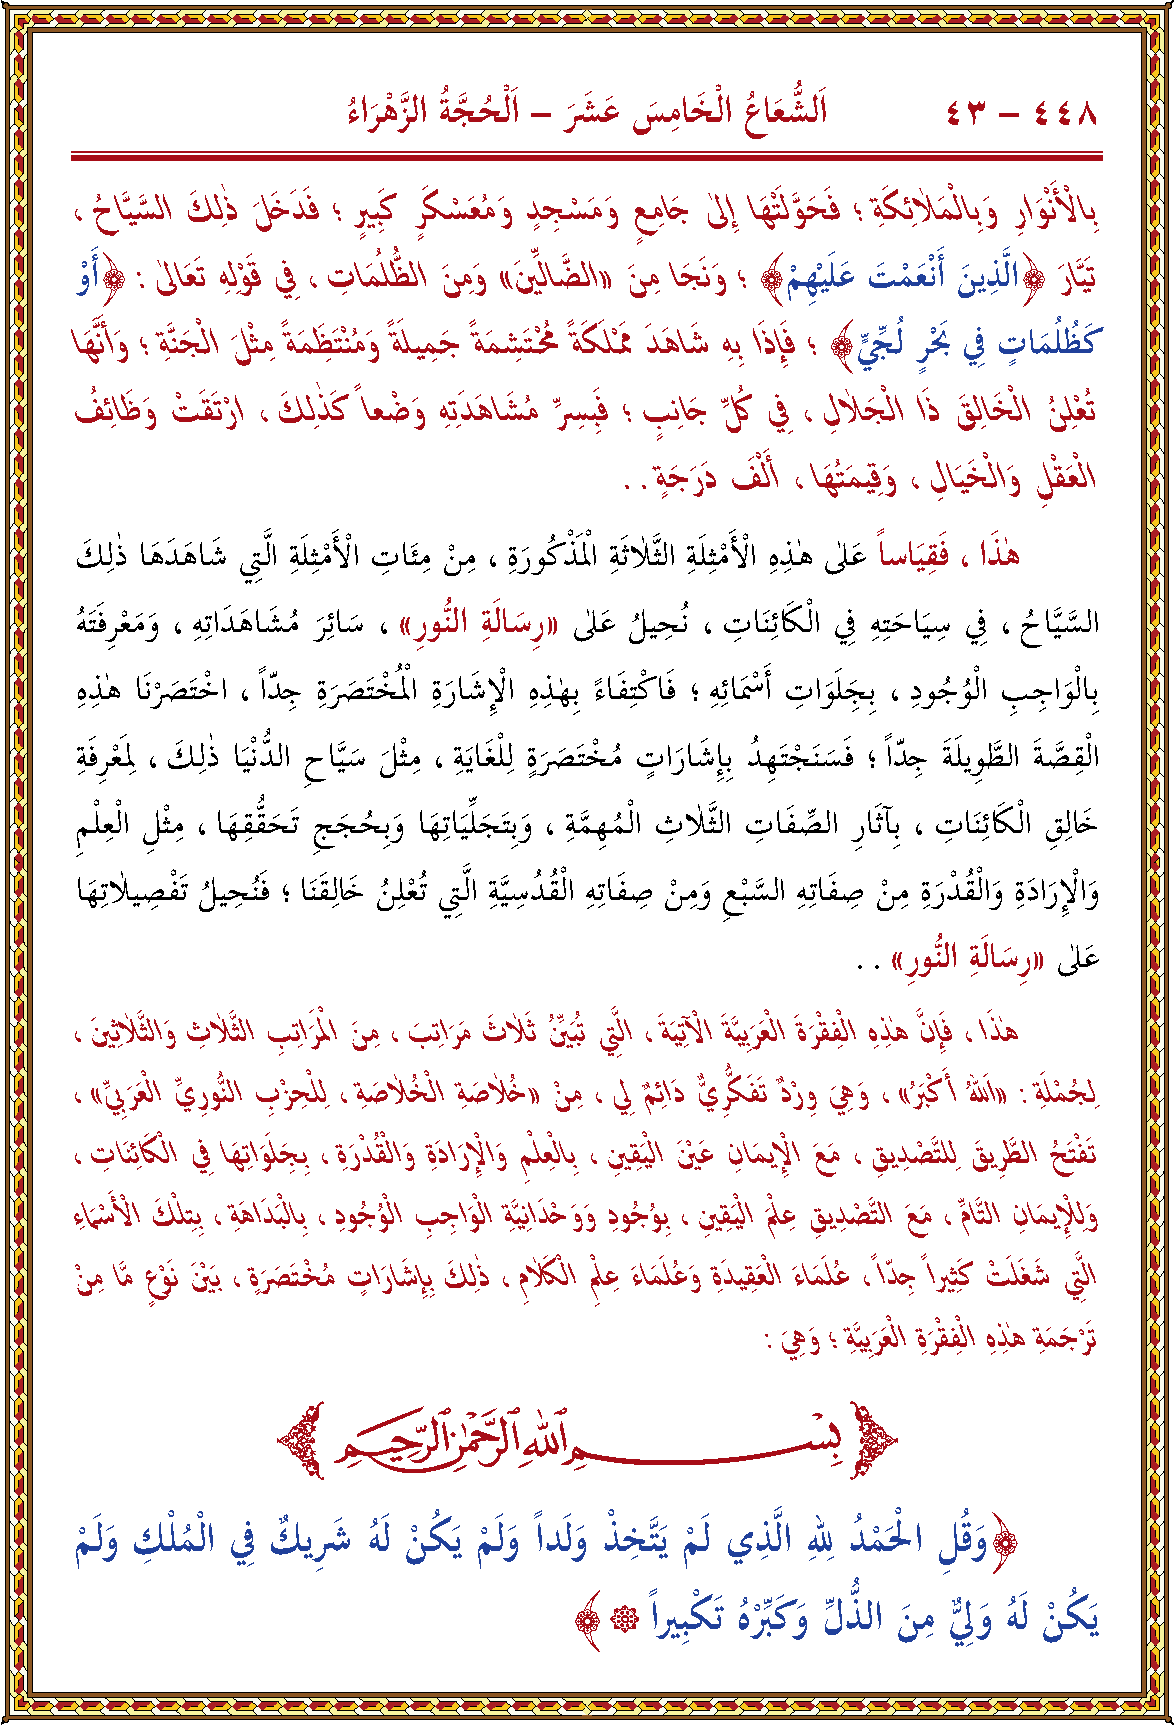 ٤٤٨ – ٤٣ اَلشُّعَاعُ الْخَامِسَ عَشَرَ – اَلْحُجَّةُ الزَّهْرَاءُ
بِالْأَنْوَارِ وَبِالْمَلَائِكَةِ ؛ فَحَوَّلَتْهَا إِلٰى جَامِعٍ وَمَسْجِدٍ وَمُعَسْكَرٍ كَبِيرٍ ؛ فَدَخَلَ ذٰلِكَ السَّيَّاحُ ،
تَيَّارَ ﴿الَّذِينَ أَنْعَمْتَ عَلَيْهِمْ﴾ ؛ وَنَجَا مِنَ «الضَّالِّينَ» وَمِنَ الظُّلُمَاتِ ، فِي قَوْلِهِ تَعَالٰى : ﴿أَوْ
كَظُلُمَاتٍ فِي بَحْرٍ لُجِّيٍّ﴾ ؛ فَإِذَا بِهِ شَاهَدَ مَمْلَكَةً مُحْتَشِمَةً جَمِيلَةً وَمُنْتَظَمَةً مِثْلَ الْجَنَّةِ ؛ وَأَنَّهَا
تُعْلِنُ الْخَالِقَ ذَا الْجَلَالِ ، فِي كُلِّ جَانِبٍ ؛ فَبِسِرِّ مُشَاهَدَتِهِ وَضْعاً كَذٰلِكَ ، ارْتَقَتْ وَظَائِفُ
الْعَقْلِ وَالْخَيَالِ ، وَقِيمَتُهَا ، أَلْفَ دَرَجَةٍ . .
هٰذَا ، فَقِيَاساً عَلٰى هٰذِهِ الْأَمْثِلَةِ الثَّلَاثَةِ الْمَذْكُورَةِ ، مِنْ مِئَاتِ الْأَمْثِلَةِ الَّتِي شَاهَدَهَا ذٰلِكَ
السَّيَّاحُ ، فِي سِيَاحَتِهِ فِي الْكَائِنَاتِ ، نُحِيلُ عَلٰى «رِسَالَةِ النُّورِ» ، سَائِرَ مُشَاهَدَاتِهِ ، وَمَعْرِفَتَهُ
بِالْوَاجِبِ الْوُجُودِ ، بِجَلَوَاتِ أَسْمَائِهِ ؛ فَاكْتِفَاءً بِهٰذِهِ الْإِشَارَةِ الْمُخْتَصَرَةِ جِدّاً ، اخْتَصَرْنَا هٰذِهِ
الْقِصَّةَ الطَّوِيلَةَ جِدّاً ؛ فَسَنَجْتَهِدُ بِإِشَارَاتٍ مُخْتَصَرَةٍ لِلْغَايَةِ ، مِثْلَ سَيَّاحِ الدُّنْيَا ذٰلِكَ ، لِمَعْرِفَةِ
خَالِقِ الْكَائِنَاتِ ، بِآثَارِ الصِّفَاتِ الثَّلَاثِ الْمُهِمَّةِ ، وَبِتَجَلِّيَاتِهَا وَبِحُجَجِ تَحَقُّقِهَا ، مِثْلِ الْعِلْمِ
وَالْإِرَادَةِ وَالْقُدْرَةِ مِنْ صِفَاتِهِ السَّبْعِ وَمِنْ صِفَاتِهِ الْقُدُسِيَّةِ الَّتِي تُعْلِنُ خَالِقَنَا ؛ فَنُحِيلُ تَفْصِيلَاتِهَا
عَلٰى «رِسَالَةِ النُّورِ» . .
هٰذَا ، فَإِنَّ هٰذِهِ الْفِقْرَةَ الْعَرَبِيَّةَ الْآتِيَةَ ، الَّتِي تُبَيِّنُ ثَلَاثَ مَرَاتِبَ ، مِنَ الْمَرَاتِبِ الثَّلَاثِ وَالثَّلَاثِينَ ،
لِجُمْلَةِ : «اَللهُ أَكْبَرُ» ، وَهِيَ وِرْدٌ تَفَكُّرِيٌّ دَائِمٌ لِي ، مِنْ «خُلَاصَةِ الْخُلَاصَةِ ، لِلْحِزْبِ النُّورِيِّ الْعَرَبِيِّ» ،
تَفْتَحُ الطَّرِيقَ لِلتَّصْدِيقِ ، مَعَ الْإِيمَانِ عَيْنَ الْيَقِينِ ، بِالْعِلْمِ وَالْإِرَادَةِ وَالْقُدْرَةِ ، بِجَلَوَاتِهَا فِي الْكَائِنَاتِ ،
وَلِلْإِيمَانِ التَّامِّ ، مَعَ التَّصْدِيقِ عِلْمَ الْيَقِينِ ، بِوُجُودِ وَوَحْدَانِيَّةِ الْوَاجِبِ الْوُجُودِ ، بِالْبَدَاهَةِ ، بِتِلْكَ الْأَسْمَاءِ
الَّتِي شَغَلَتْ كَثِيراً جِدّاً ، عُلَمَاءَ الْعَقِيدَةِ وَعُلَمَاءَ عِلْمِ الْكَلَامِ ، ذٰلِكَ بِإِشَارَاتٍ مُخْتَصَرَةٍ ، بَيْنَ نَوْعٍ مَّا مِنْ
تَرْجَمَةِ هٰذِهِ الْفِقْرَةِ الْعَرَبِيَّةِ ؛ وَهِيَ :
بِسْمِ اللهِ الرَّحْمٰنِ الرَّحِيمِ
﴿وَقُلِ الْحَمْدُ لِلهِ الَّذِي لَمْ يَتَّخِذْ وَلَداً وَلَمْ يَكُنْ لَهُ شَرِيكٌ فِي الْمُلْكِ وَلَمْ
يَكُنْ لَهُ وَلِيٌّ مِنَ الذُّلِّ وَكَبِّرْهُ تَكْبِيراً ۞﴾